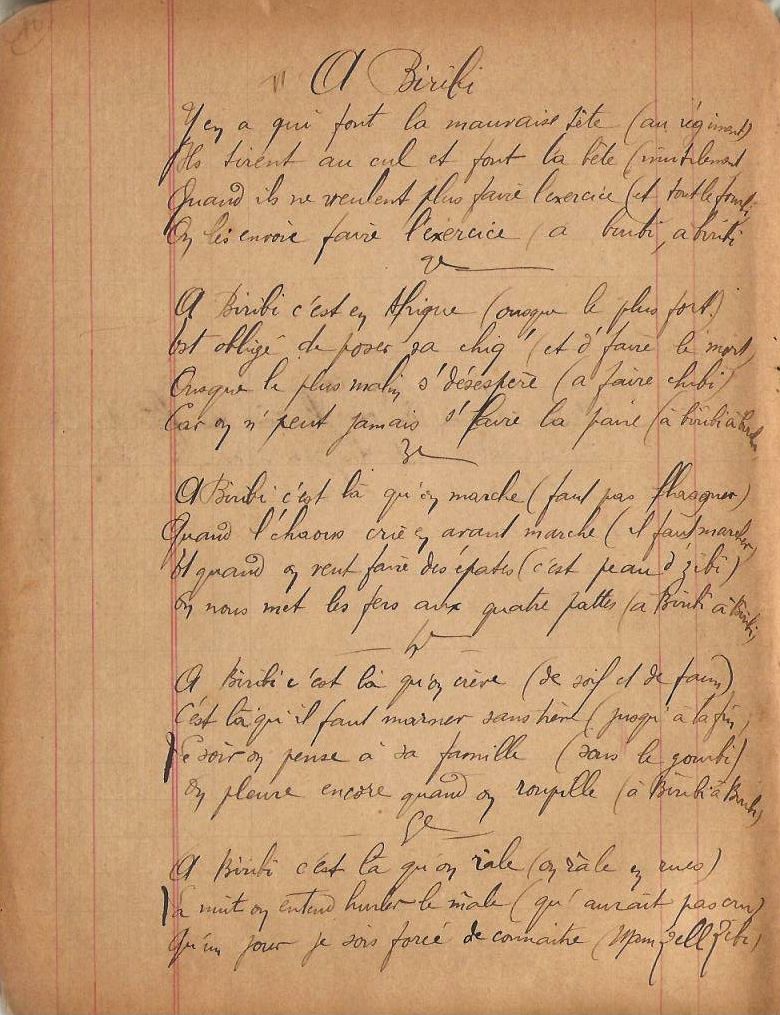 A Biribi
Y en a qui font la mauvaise tête (au régiment)
Ils tirent au cul et font la bête (inutilement
Quand ils ne veulent plus faire l'exercice (et tout le fourbi
On les envoie faire l'exercice (a biribi, a biribi
2e
A Biribi c'est en Afrique (ousque le plus fort)
Est obligé de poser sa chiq' (et d'faire le mort)
Ousque le plus malin s'désespère (a faire chibi)
Car on n'peut jamais s'faire la paire (à biribi à biribi
3e
A Biribi c'est là qu'on marche (faut pas flaagner)
Quand l'chaous crie en avant marche (il faut marcher)
Et quand on veut faire des épates (c'est peau d'zibi)
On nous met les fers aux quatre pattes (a Biribi à Biribi)
4e
A Biribi c'est là qu'on crève (de soif et de faim)
C'est là qu'il faut marner sans trève (jusqu'à la fin)
Le soir on pense à sa famille (sous le gourbi)
On pleure encore quand on roupille (à Biribi à Biribi)
5e
A Biribi c'est là qu'on râle (on râle en rut)
La nuit on entend hurler le mâle (qu'aurait pas cru)
Qu'un jour je sois forcé de connaitre (Mam'zell Zibi)